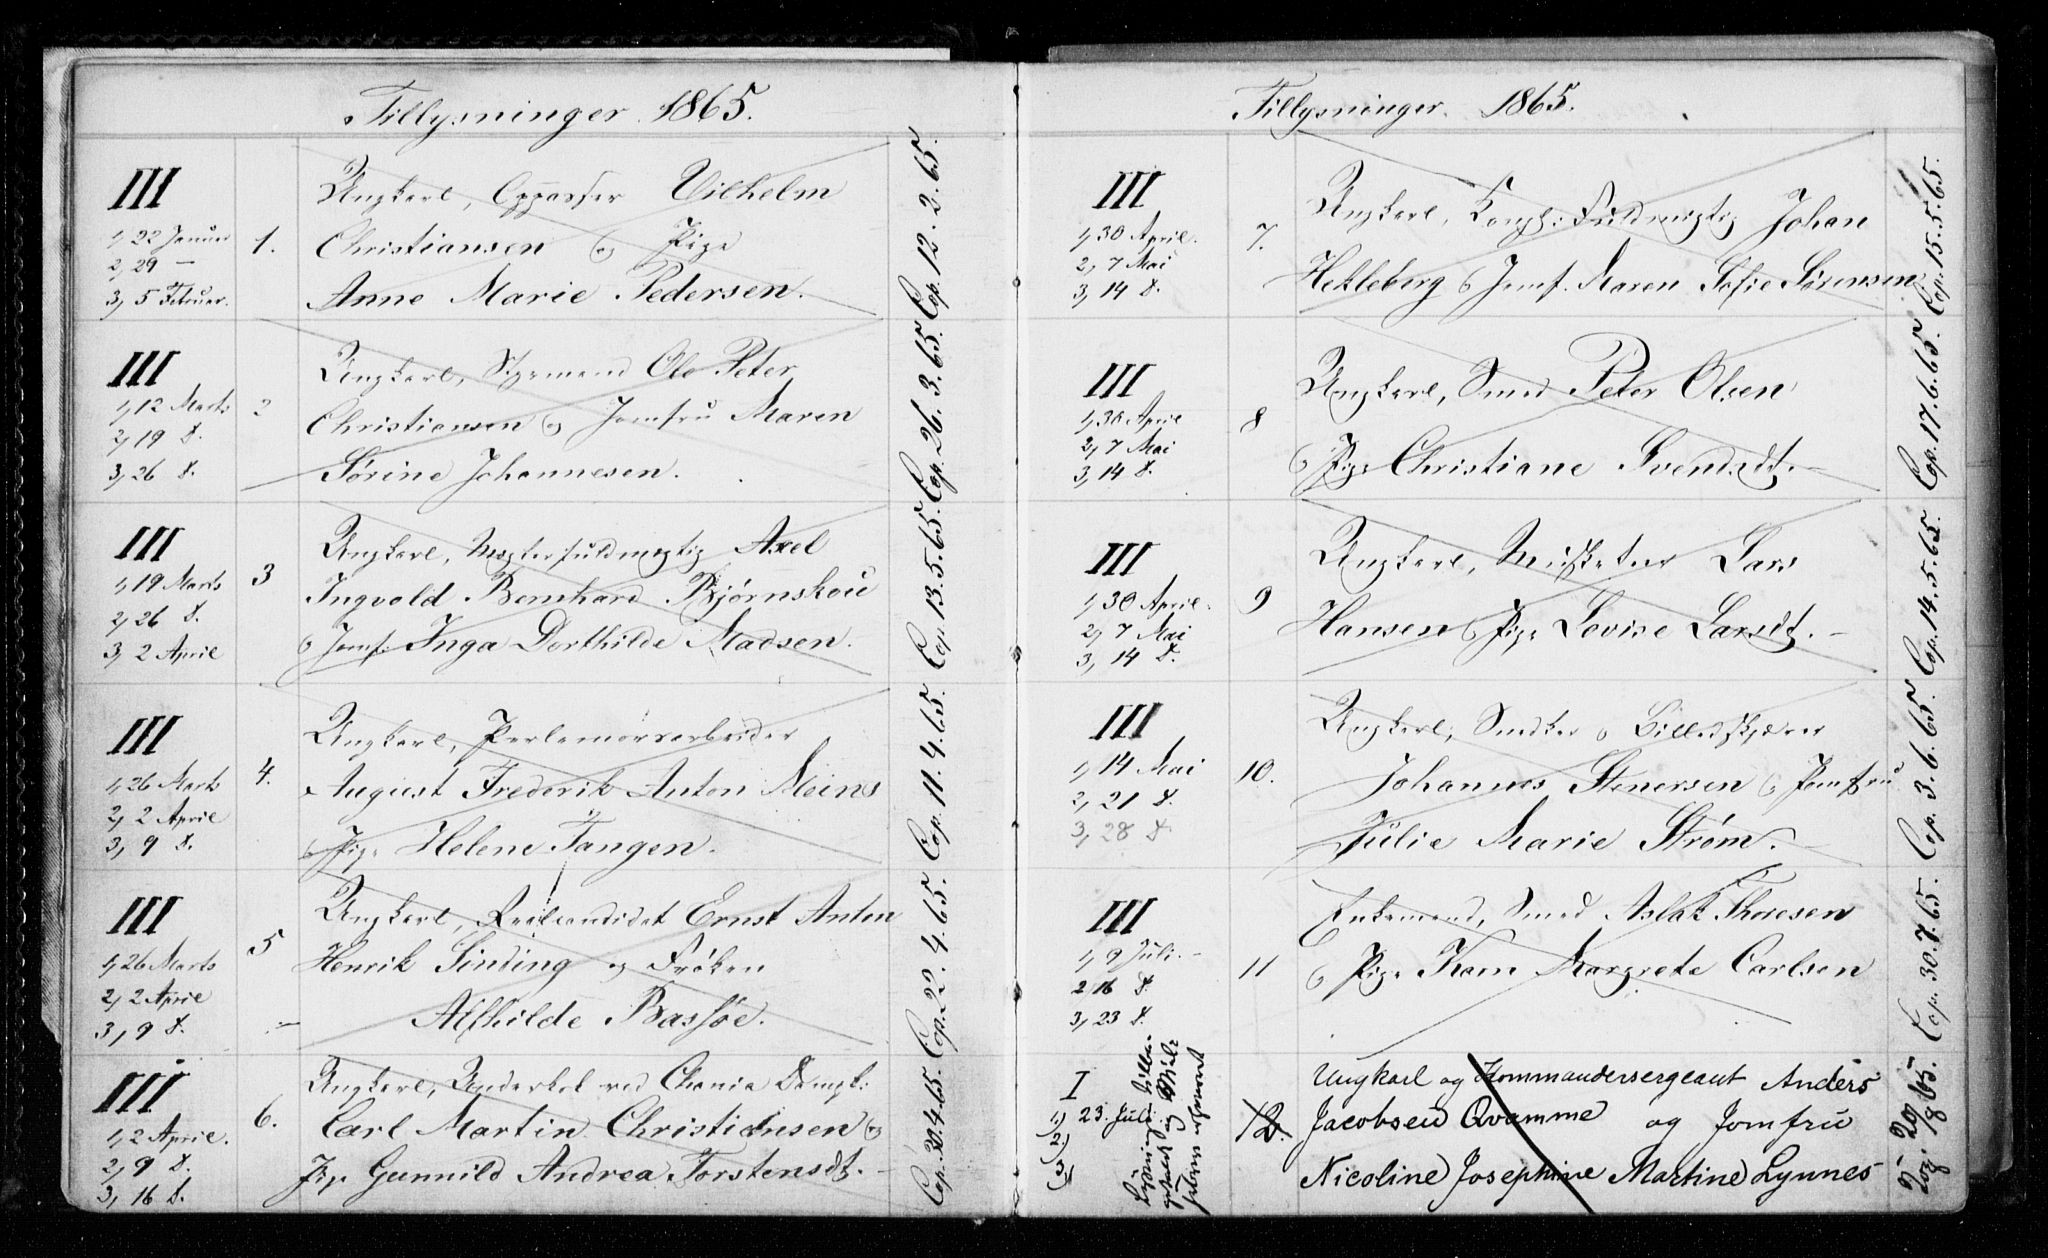 Tillysninger 1865.
III
1, 22 Januar
2, 29 —
3, 5 Februar.
1.
Ungkarl, Oppasser Vilhelm
Christiansen og Pige
Anne Marie Pedersen.
Cop. 12. 2. 65.
III
1, 12 Marts
2, 19 d.
3, 26 d.
2
Ungkarl, Styrmand Ole Peter
Christiansen og Jomfru Maren
Sørine Johannesen.
Cop. 26. 3. 65.
III
1, 19 Marts
2, 26 d.
3, 2 April
3
Ungkarl, Axel
Ingvold Bernhard Bjørnskou
og Jomf. Inga Dorthilde Madsen.
Cop. 13. 5. 65.
III
1, 26 Marts
2, 2 April
3, 9 d.
4.
Ungkarl, Perlemorsarbeider
August Frederik Anton Meins
og Pige Helene Tangen.
Cop. 11. 4. 65.
III
1, 26 Marts
2, 2 April
3, 9 d.
5
Ungkarl, Realcandidat Ernst Anton
Henrik Sinding og Frøken
Alfhilde Bassøe.
Cop. 22. 4. 65.
III
1, 2 April.
2, 9 d.
3, 16 d.
6.
Ungkarl, Underkok ved Chania Dampk:
Carl Martin Christiansen og
Pige Gunnild Andrea Torstensdt.
Cop. 30. 4. 65.
Tillysninger. 1865.
III
1, 30 April.
2, 7 Mai
3, 14 d.
7.
Ungkarl, Fuldmægtig Johan
Hekleberg og Jomf. Maren Sofie Sørensen
Cop. 15. 5. 65.
III
1, 30 April
2, 7 Mai
3, 14 d.
8
Ungkarl, Smed Peter Olsen
og Pige Christiane Svendsdt. —
Cop. 17. 6. 65.
III
1, 30 April.
2, 7 Mai
3, 14 d.
9
Ungkarl, Musketeer Lars
Hansen og Pige Lovise Larsdt. —
Cop. 14. 5. 65.
III
1, 14 Mai
2, 21 d.
3, 28 d.
10.
Ungkarl, Snedker og Billedskjærer
Johannes Stenersen og Jomfru
Julie Marie Strøm. —
Cop. 3. 6. 65.
III
1, 9 Juli. —
2, 16 d.
3, 23 d.
11
Enkemand, Smed Aslak Thoresen
og Pige Karn Margrete Carlsen
Cop. 30. 7. 65.
I
1.) 23. Juli.
2.)
3.)
12.
Ungkarl og Kommandersergeant Anders
Jacobsen Qvamme og Jomfru
Nicoline Josephine Martine Lynnes
1865.